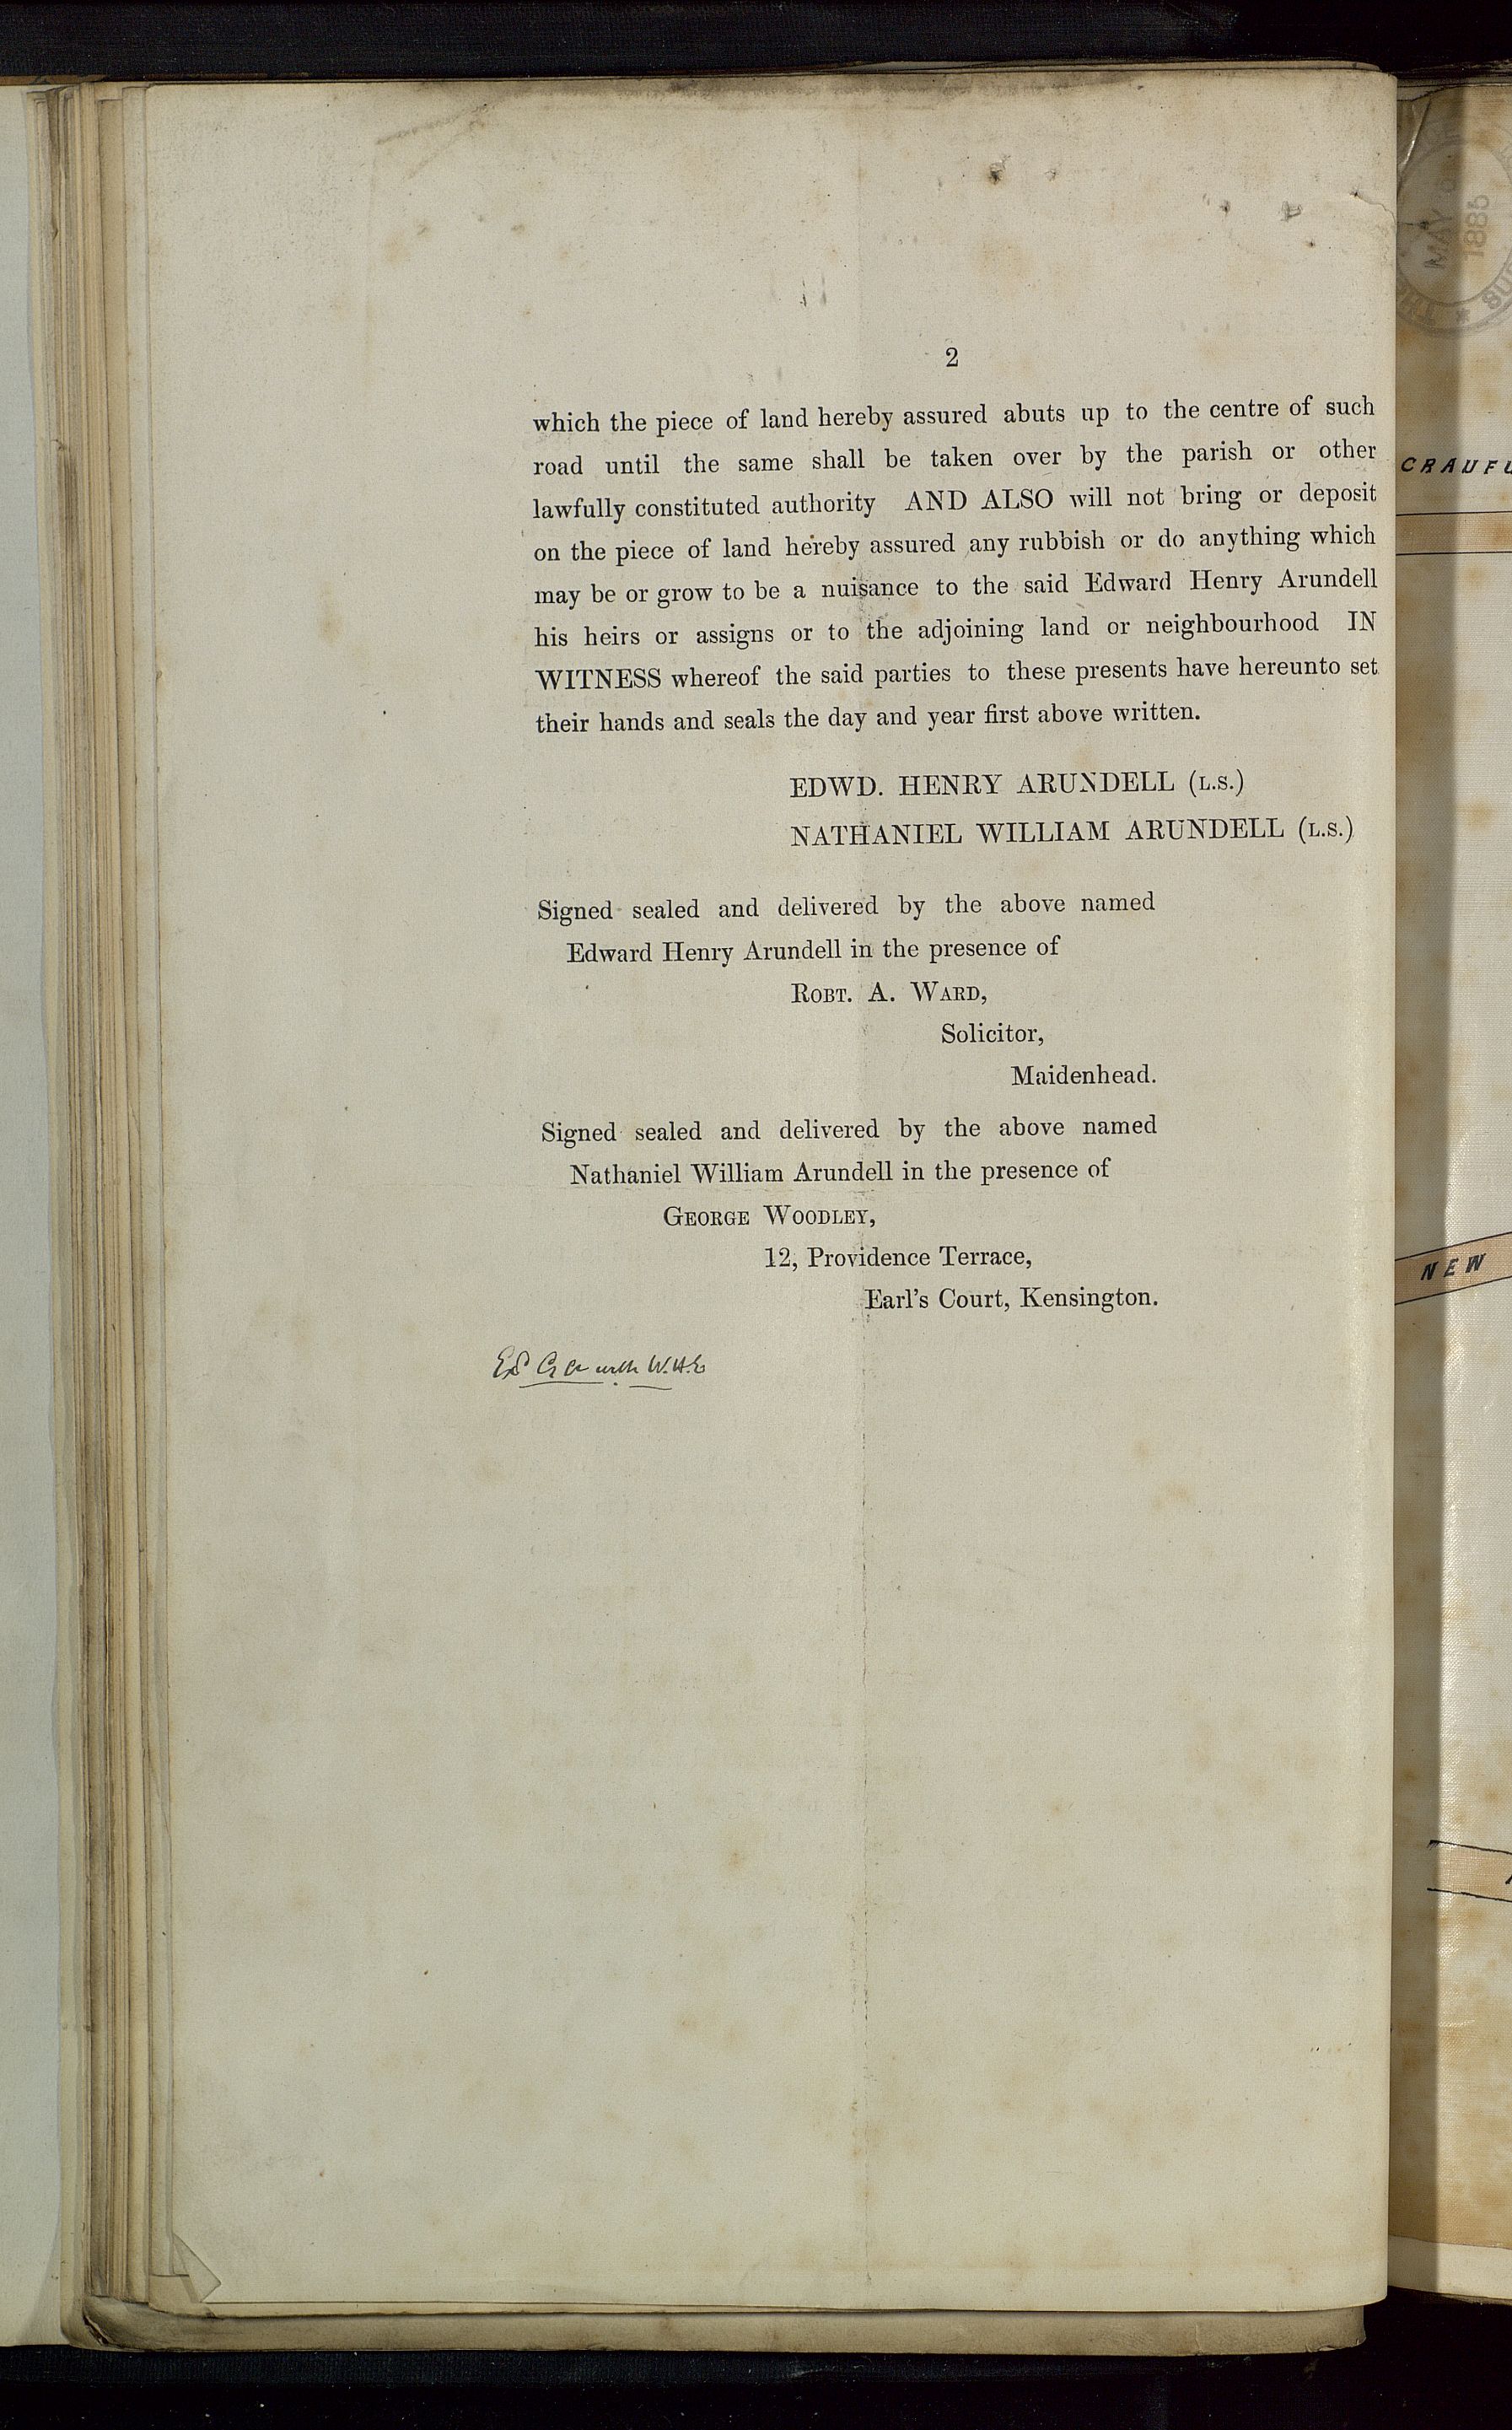 2
which the piece of land hereby assured abuts up to the centre of such
road until the same shall be taken over by the parish or other
lawfully constituted authority AND ALSO will not bring or deposit
on the piece of land hereby assured any rubbish or do anything which
may be or grow to be a nuisance to the said Edward Henry Arundell
his heirs or assigns or to the adjoining land or neighbourhood IN
WITNESS whereof the said parties to these presents have hereunto set
their hands and seals the day and year first above written.
EDWD. HENRY ARUNDELL (L.S.)
NATHANIEL WILLIAM ARUNDELL (L.S.)
Signed sealed and delivered by the above named
Edward Henry Arundell in the presence of
ROBT. A. WARD,
Solicitor,
Maidenhead.
Signed sealed and delivered by the above named
Nathaniel William Arundell in the presence of
GEORGE WOODLEY,
12, Providence Terrace,
Earl's Court, Kensington.
with W.H.
MAY
CRAUFU
NEW